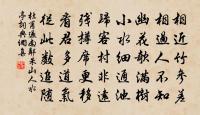 相近竹參差
相過人不知
幽花欹滿樹
小水細通池
歸客村非遠
殘樽席更移
看君多道氣
從此數追隨
杜甫過南鄰朱山人水
亭詞典網集